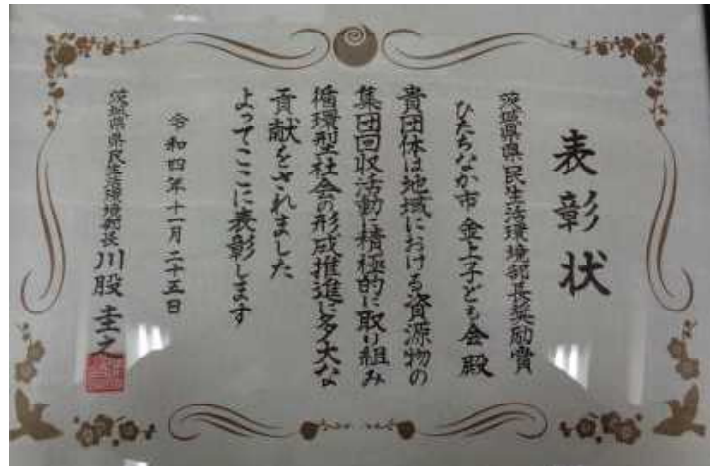 表彰状
茨城県県民生活環境部長奨励賞
ひたちなか市 金上子ども会 殿
貴団体は地域における資源物の
集団回収活動に積極的に取り組み
循環型社会の形成推進に多大な
貢献をされました
よってここに表彰します
令和四年十一月二十五日
茨城県県民生活環境部長 川股圭之